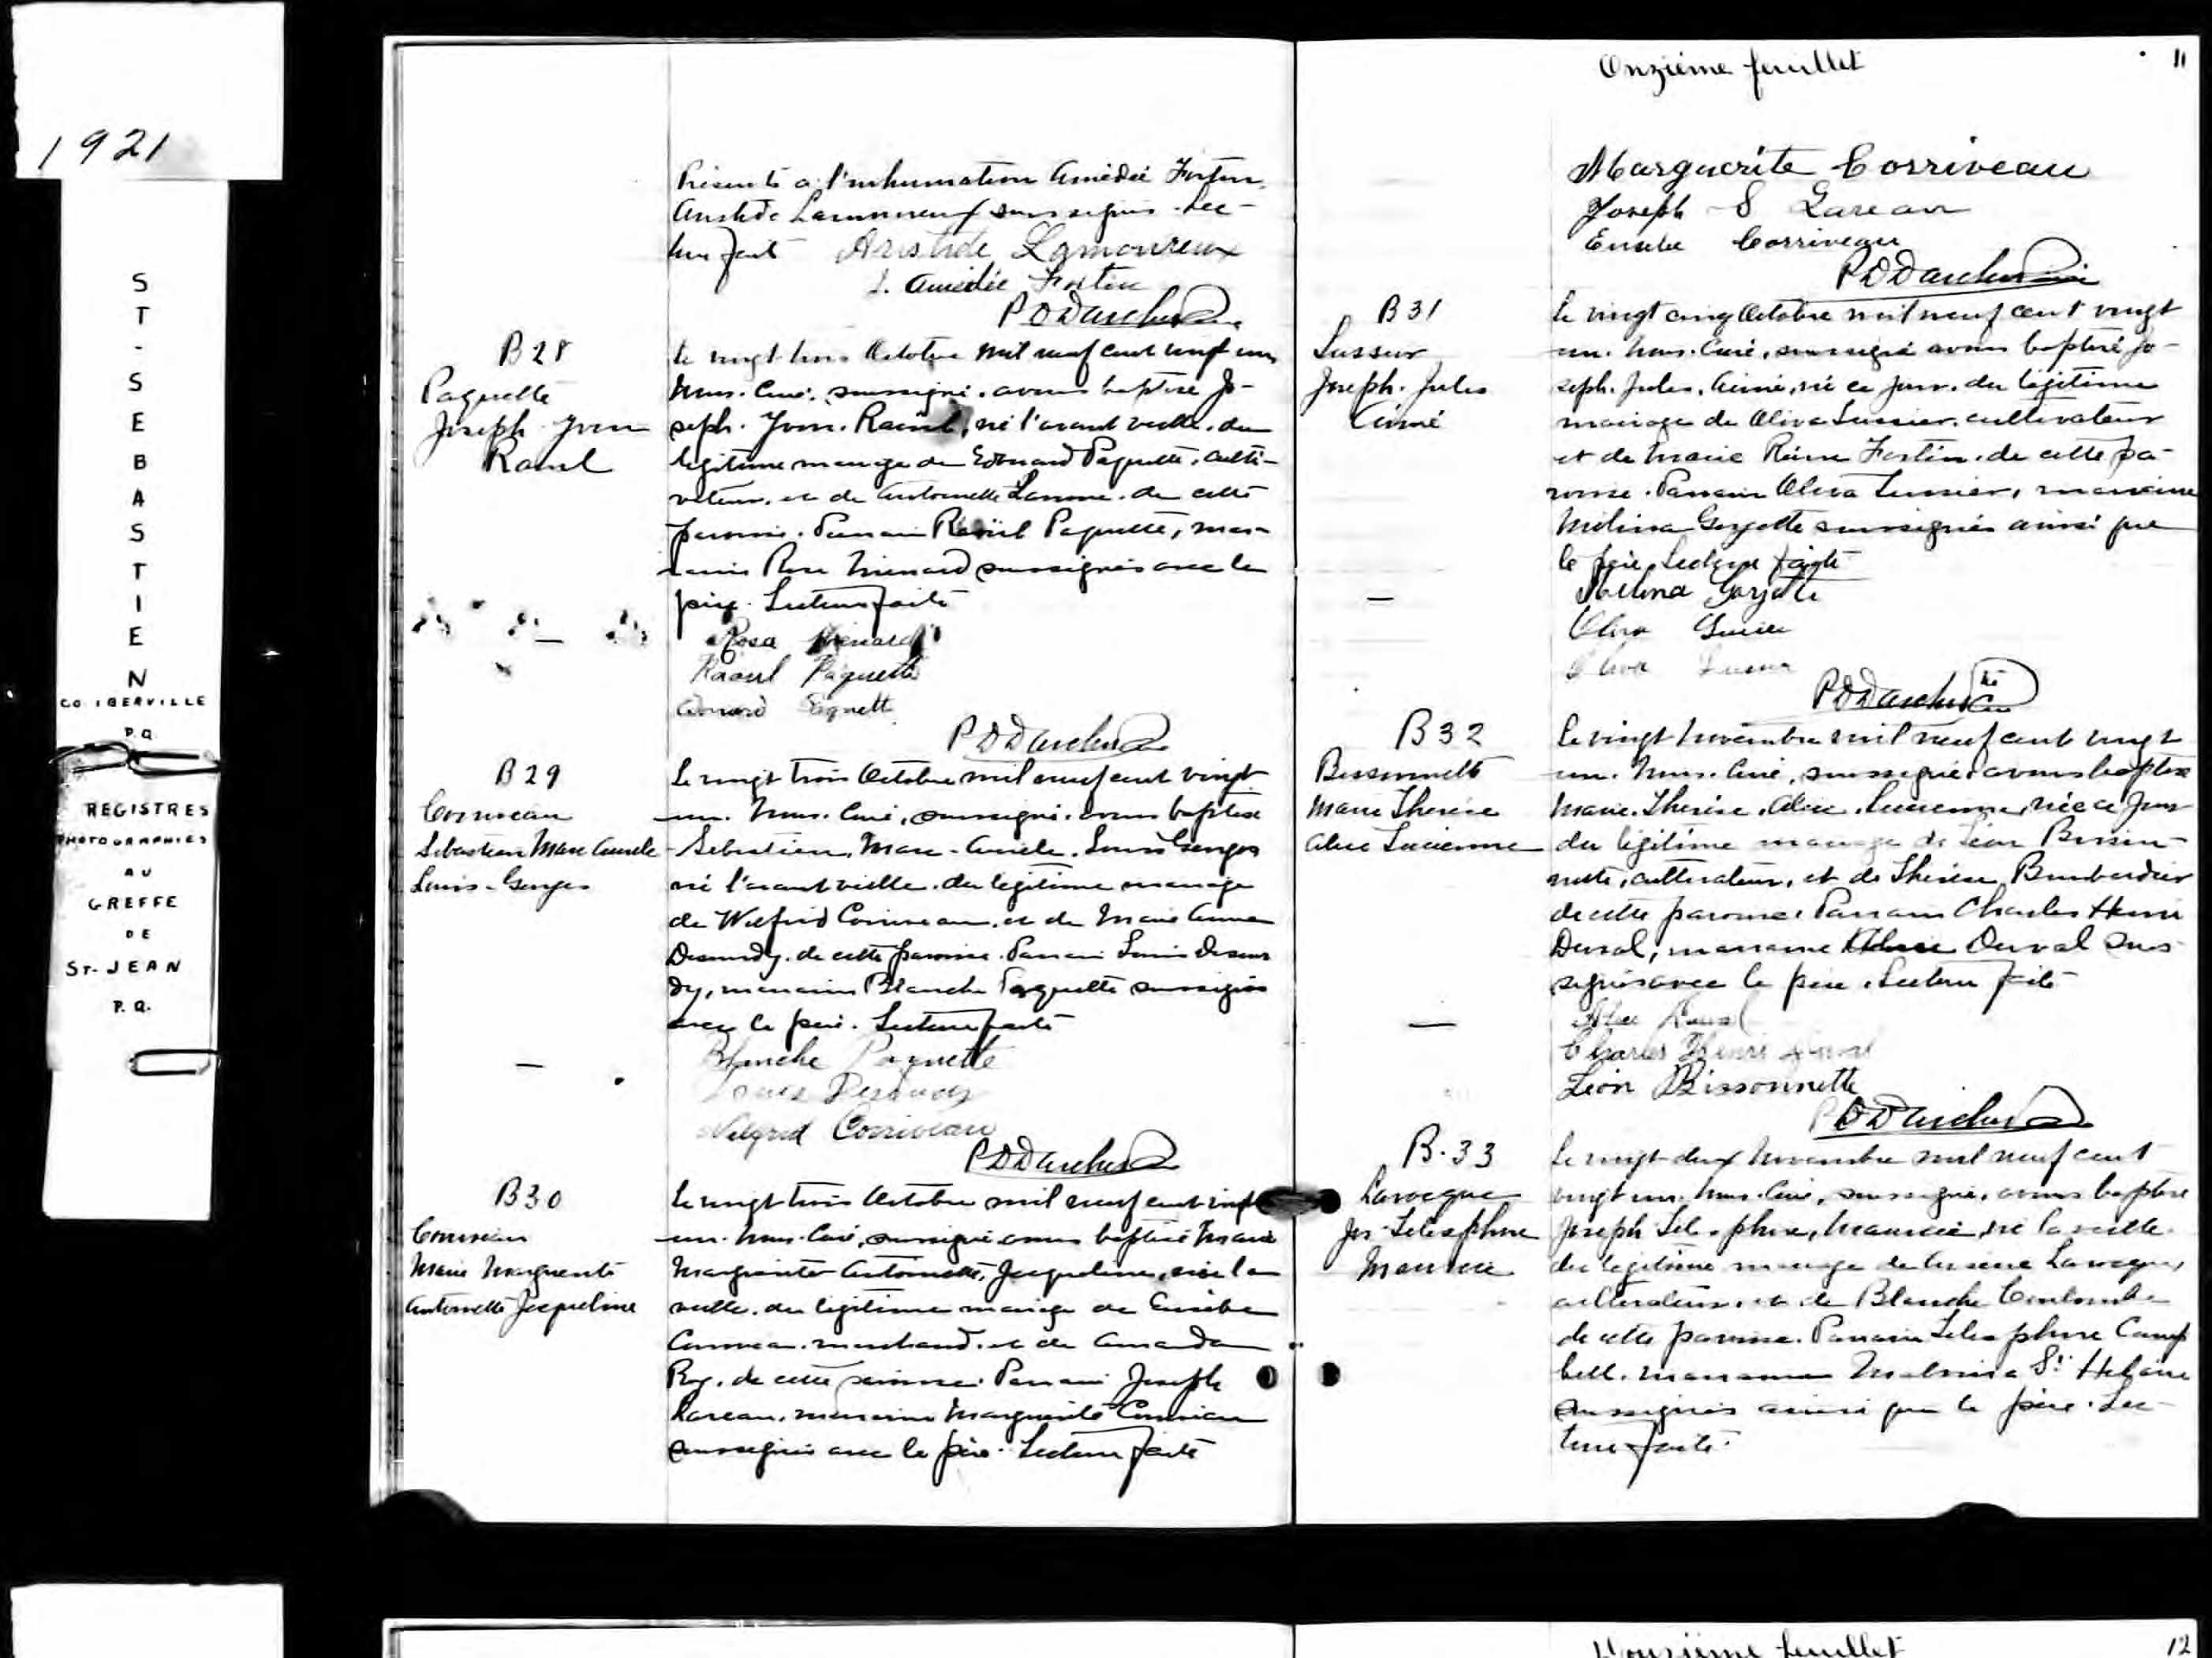 1921
ST-SEBASTIEN
CO. IBERVILLE
P.Q.
REGISTRES
PHOTOGRAPHIÉS
AU
GREFFE
DE
ST-JEAN
P.Q.
Présents à l'inhumation Amédée Fortin,
Aristide Lamoureux soussignés. Lec-
ture faite Aristide Lamoureux
J. Amédée Fortin
B28
Paquette
Joseph Yvon
Raoul
Le vingt trois Octobre mil neuf cent vingt un
Nous. Curé. soussigné. avons baptisé Jo-
seph. Yvon. Raoul, né l'avant veille. du
légitime mariage de Edouard Paquette. culti-
vateur. et de Antoinette de cette
paroisse. Parrain Raoul Paquette, mar-
raine Rosa Ménard soussignés avec le
père. Lecture faite
Rosa Ménard
Raoul Paquette
Paquette
B29
Corriveau
Sébastien Marc Aurèle
Louis-Georges
Le vingt trois Octobre mil neuf cent vingt
un. Nous. Curé, soussigné. avons baptisé
Sébastien, Marc-Aurèle. Louis Georges
né l'avant veille. du légitime mariage
de Wilfrid Corriveau. et de Marie Anna
Desourdy. de cette paroisse. Parrain Louis Desour
dy, marraine Blanche Paquette soussignés
avec le père. Lecture faite
Blanche Paquette
Louis Desourdy
Wilfrid Corriveau
B30
Corriveau
Marie Marguerite
Antoinette Jacqueline
Le vingt trois Octobre mil neuf cent vingt
un. Nous. Curé, soussigné avons baptisé Marie
Marguerite Antoinette, Jacqueline, née la
veille. du légitime mariage de Eusèbe
Corriveau. marchand. et de Amanda
Roy. de cette paroisse. Parrain Joseph
Lareau. marraine Marguerite Corriveau
soussignés avec le père. Lecture faite
Onzième feuillet
11
Marguerite Corriveau
Joseph S Lareau
Eusèbe Corriveau
B31
Lussier
Joseph. Jules
Aimé
Le vingt cinq Octobre mil neuf cent vingt
un. Nous. Curé, soussigné avons baptisé Jo-
seph. Jules. Aimé, né ce jour. du légitime
mariage de Oliva Lussier. cultivateur
et de Marie Reine Fortin. de cette pa-
roisse. Parrain Oliva Lussier, marraine
Mélina Goyette soussignés ainsi que
le père Lecture faite
Mélina Goyette
Oliva Lussier
Oliva Lussier
B32
Bissonnette
Marie Thérèse
Alice Lucienne
Le vingt Novembre mil neuf cent vingt
un. Nous. Curé, soussigné avons baptisé
Marie. Thérèse. Alice. Lucienne, née ce jour
du légitime mariage de Léon Bisson-
nette, cultivateur, et de Thérèse Bombardier
de cette paroisse. Parrain Charles Henri
Duval, marraine Alice Duval sous-
signés avec le père. Lecture faite
Alice Duval
Charles Henri Duval
Léon Bissonnette
B.33
Larocque
Jos Télesphore
Maurice
Le vingt-deux Novembre mil neuf cent
vingt un. Nous. Curé, soussigné, avons baptisé
Joseph Télesphore, Maurice, né la veille.
du légitime mariage de Larocque,
cultivateur. et de Blanche Coulombe
de cette paroisse. Parrain Télesphore Camp
bell. marraine Malvina St Hilaire
soussignés ainsi que le père. Lec-
ture faite.
Douzième feuillet
12